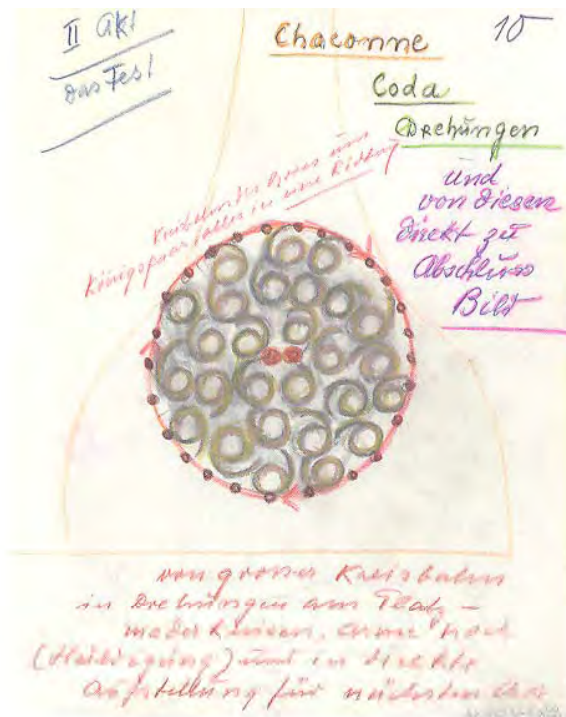 II Akt
das Fest
Chaconne
10
Coda
Drehungen
und
von diesen
direkt zu
Abschluss
Bild
Kreisbahn des Chores um
Königspaar alles in eine Richtung
von grosser Kreisbahn
in Drehungen am Platz –
Arme hoch
(Huldigung) und in direkte
Aufstellung für nächsten